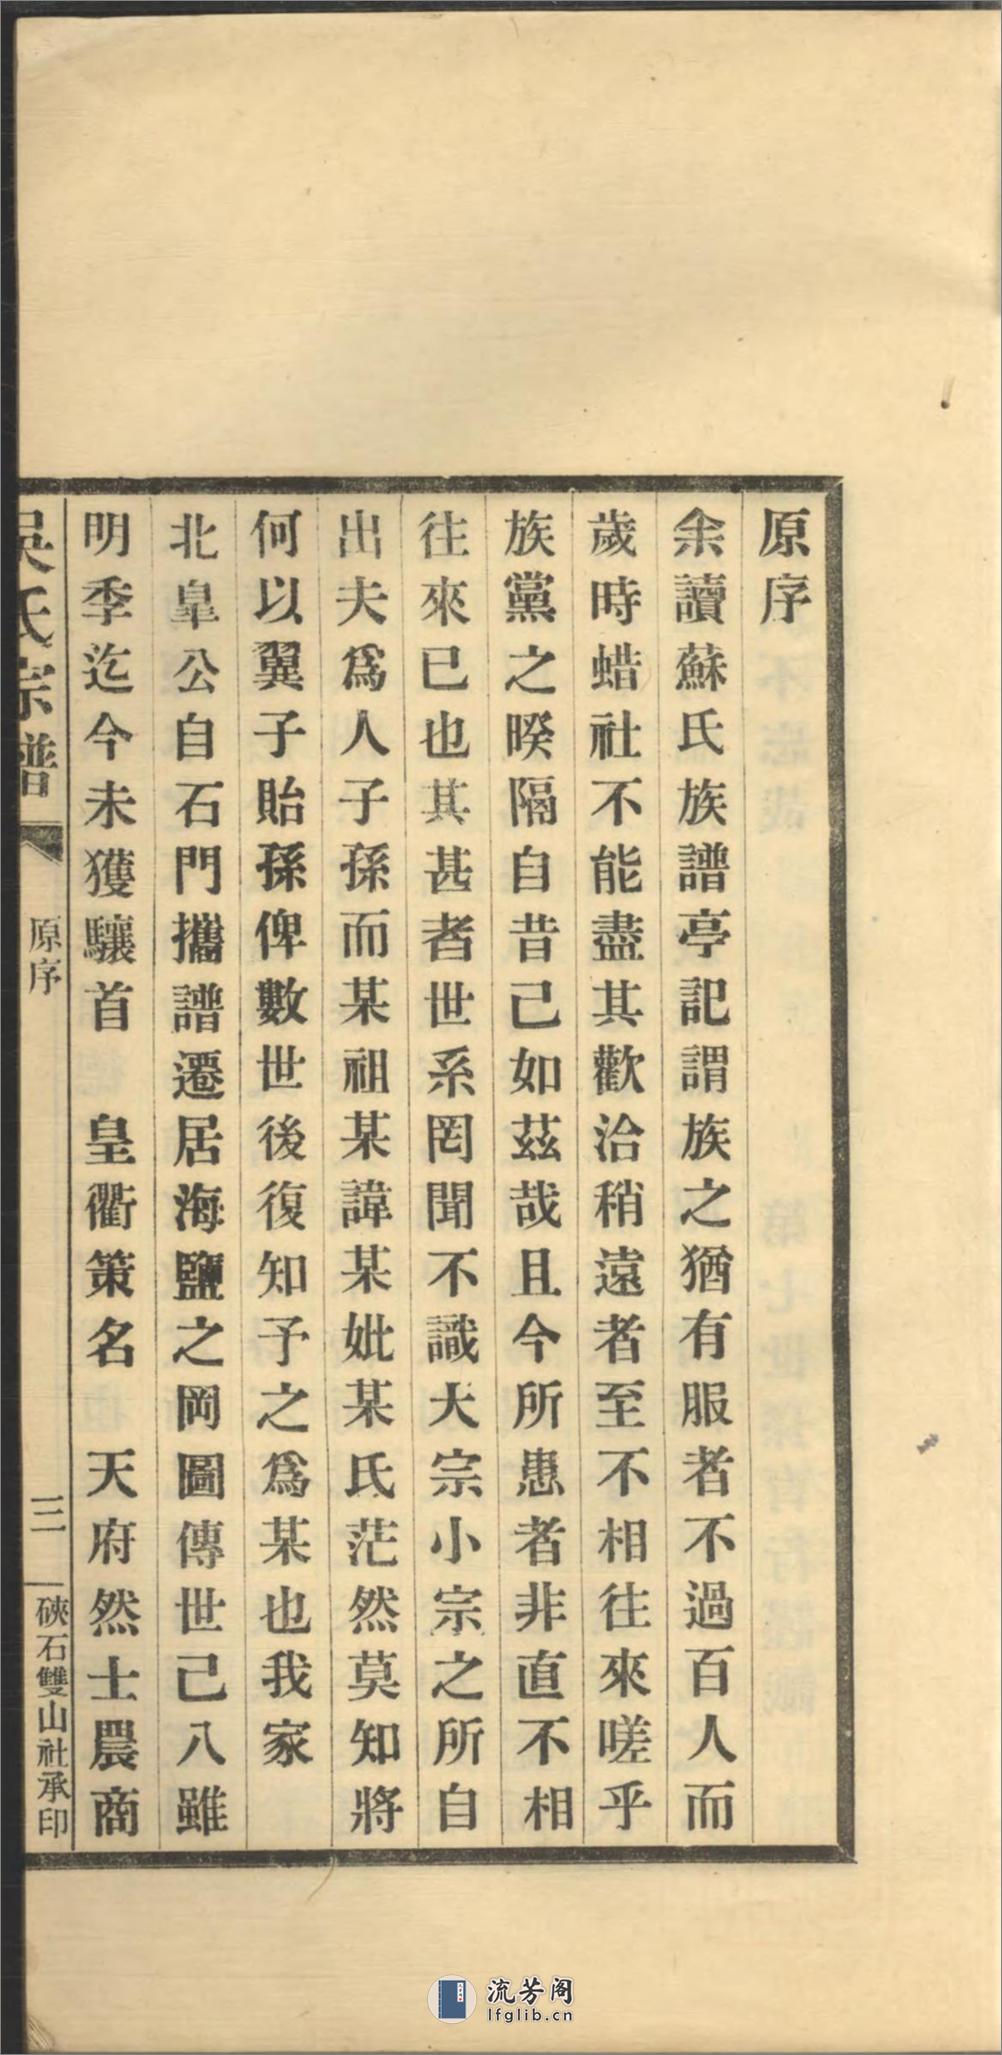 原序
余讀蘇氏族譜亭記謂族之猶有服者不過百人而
歲時蜡社不能盡其歡洽稍遠者至不相往來嗟乎
族黨之暌隔自昔已如茲哉且今所患者非直不相
往來已也其甚者世系罔聞不識大宗小宗之所自
出夫爲人子孫而某祖某諱某妣某氏茫然莫知將
何以翼子貽孫俾數世後復知予之爲某也我家
北皐公自石門攜譜遷居海鹽之岡圖傳世已八雖
明季迄今未獲驤首 皇衢策名 天府然士農商
吳氏宗譜
原序
三
硤石雙山社承印
流芳阁
lfglib.cn